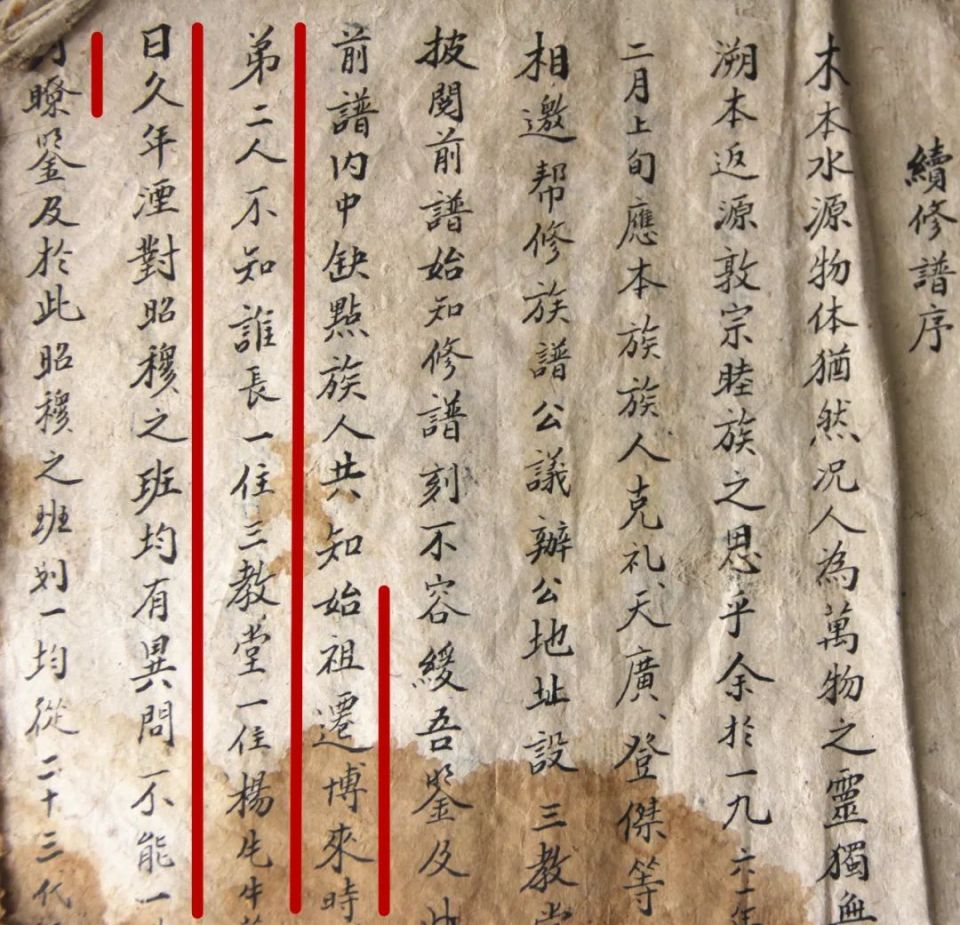 續修譜序
木本水源物体猶然况人為萬物之靈獨無
溯本返源敦宗睦族之思乎余於一九六一年
二月上旬應本族族人克礼、天廣、登傑等
相邀帮修族譜公議辦公地址設三教堂
披閱前譜始知修譜刻不容緩吾鋻及
前譜内中缺點族人共知始祖遷博來時
弟二人不知誰長一住三教堂一住楊庄
日久年湮對昭穆之班均有異問不能一
瞭鋻及於此昭穆之班划一均從二十三代